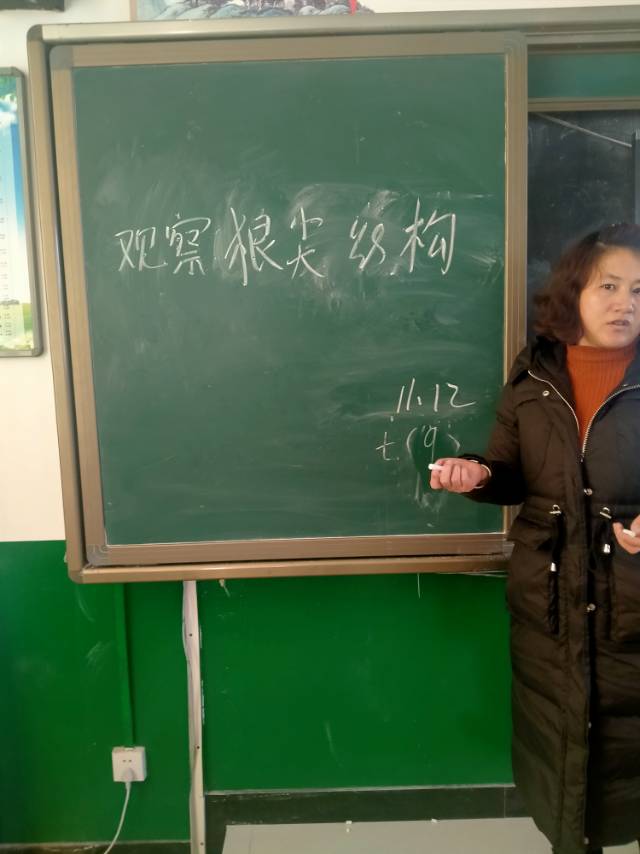 观察根尖结构
11.12
七.(9)